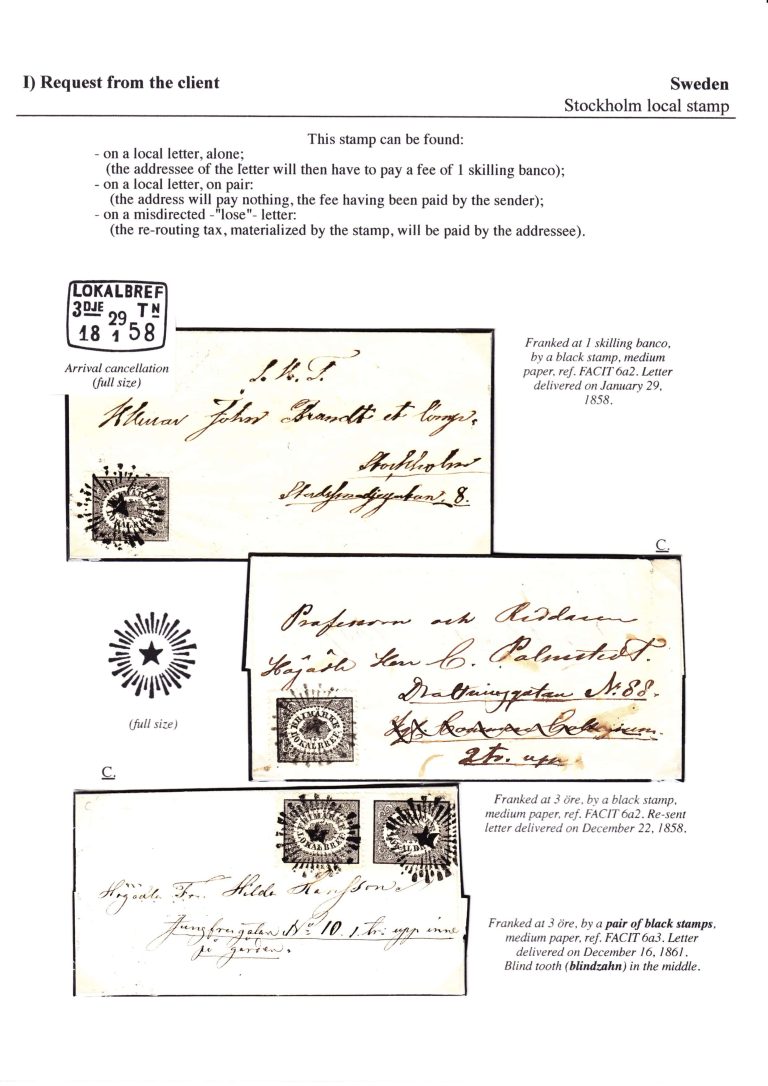 I) Request from the client
Sweden
Stockholm local stamp
This stamp can be found:
- on a local letter, alone;
(the addressee of the letter will then have to pay a fee of 1 skilling banco);
- on a local letter, on pair:
(the address will pay nothing, the fee having been paid by the sender);
- on a misdirected -"lose"- letter:
(the re-routing tax, materialized by the stamp, will be paid by the addressee).
LOKALBREF
3DJE 29 TN
18 1 58
Arrival cancellation
(full size)
Franked at 1 skilling banco,
by a black stamp, medium
paper, ref. FACIT 6a2. Letter
delivered on January 29,
1858.
John Brandt et Comp.
Stockholm
8.
C.
Professorn och Riddaren
Högädle Herr C. Palmstedt.
Drottninggatan No 88.
2 tr. upp
FRIMÄRKE
LOKALBREF
(full size)
C.
Franked at 3 öre, by a black stamp,
medium paper, ref. FACIT 6a2. Re-sent
letter delivered on December 22, 1858.
FRIMÄRKE
LOKALBREF
Högädle Fru Hilda Hansson.
Jungfrugatan No 10. 1 tr. upp inne
på gården.
Franked at 3 öre, by a pair of black stamps,
medium paper, ref. FACIT 6a3. Letter
delivered on December 16, 1861.
Blind tooth (blindzahn) in the middle.